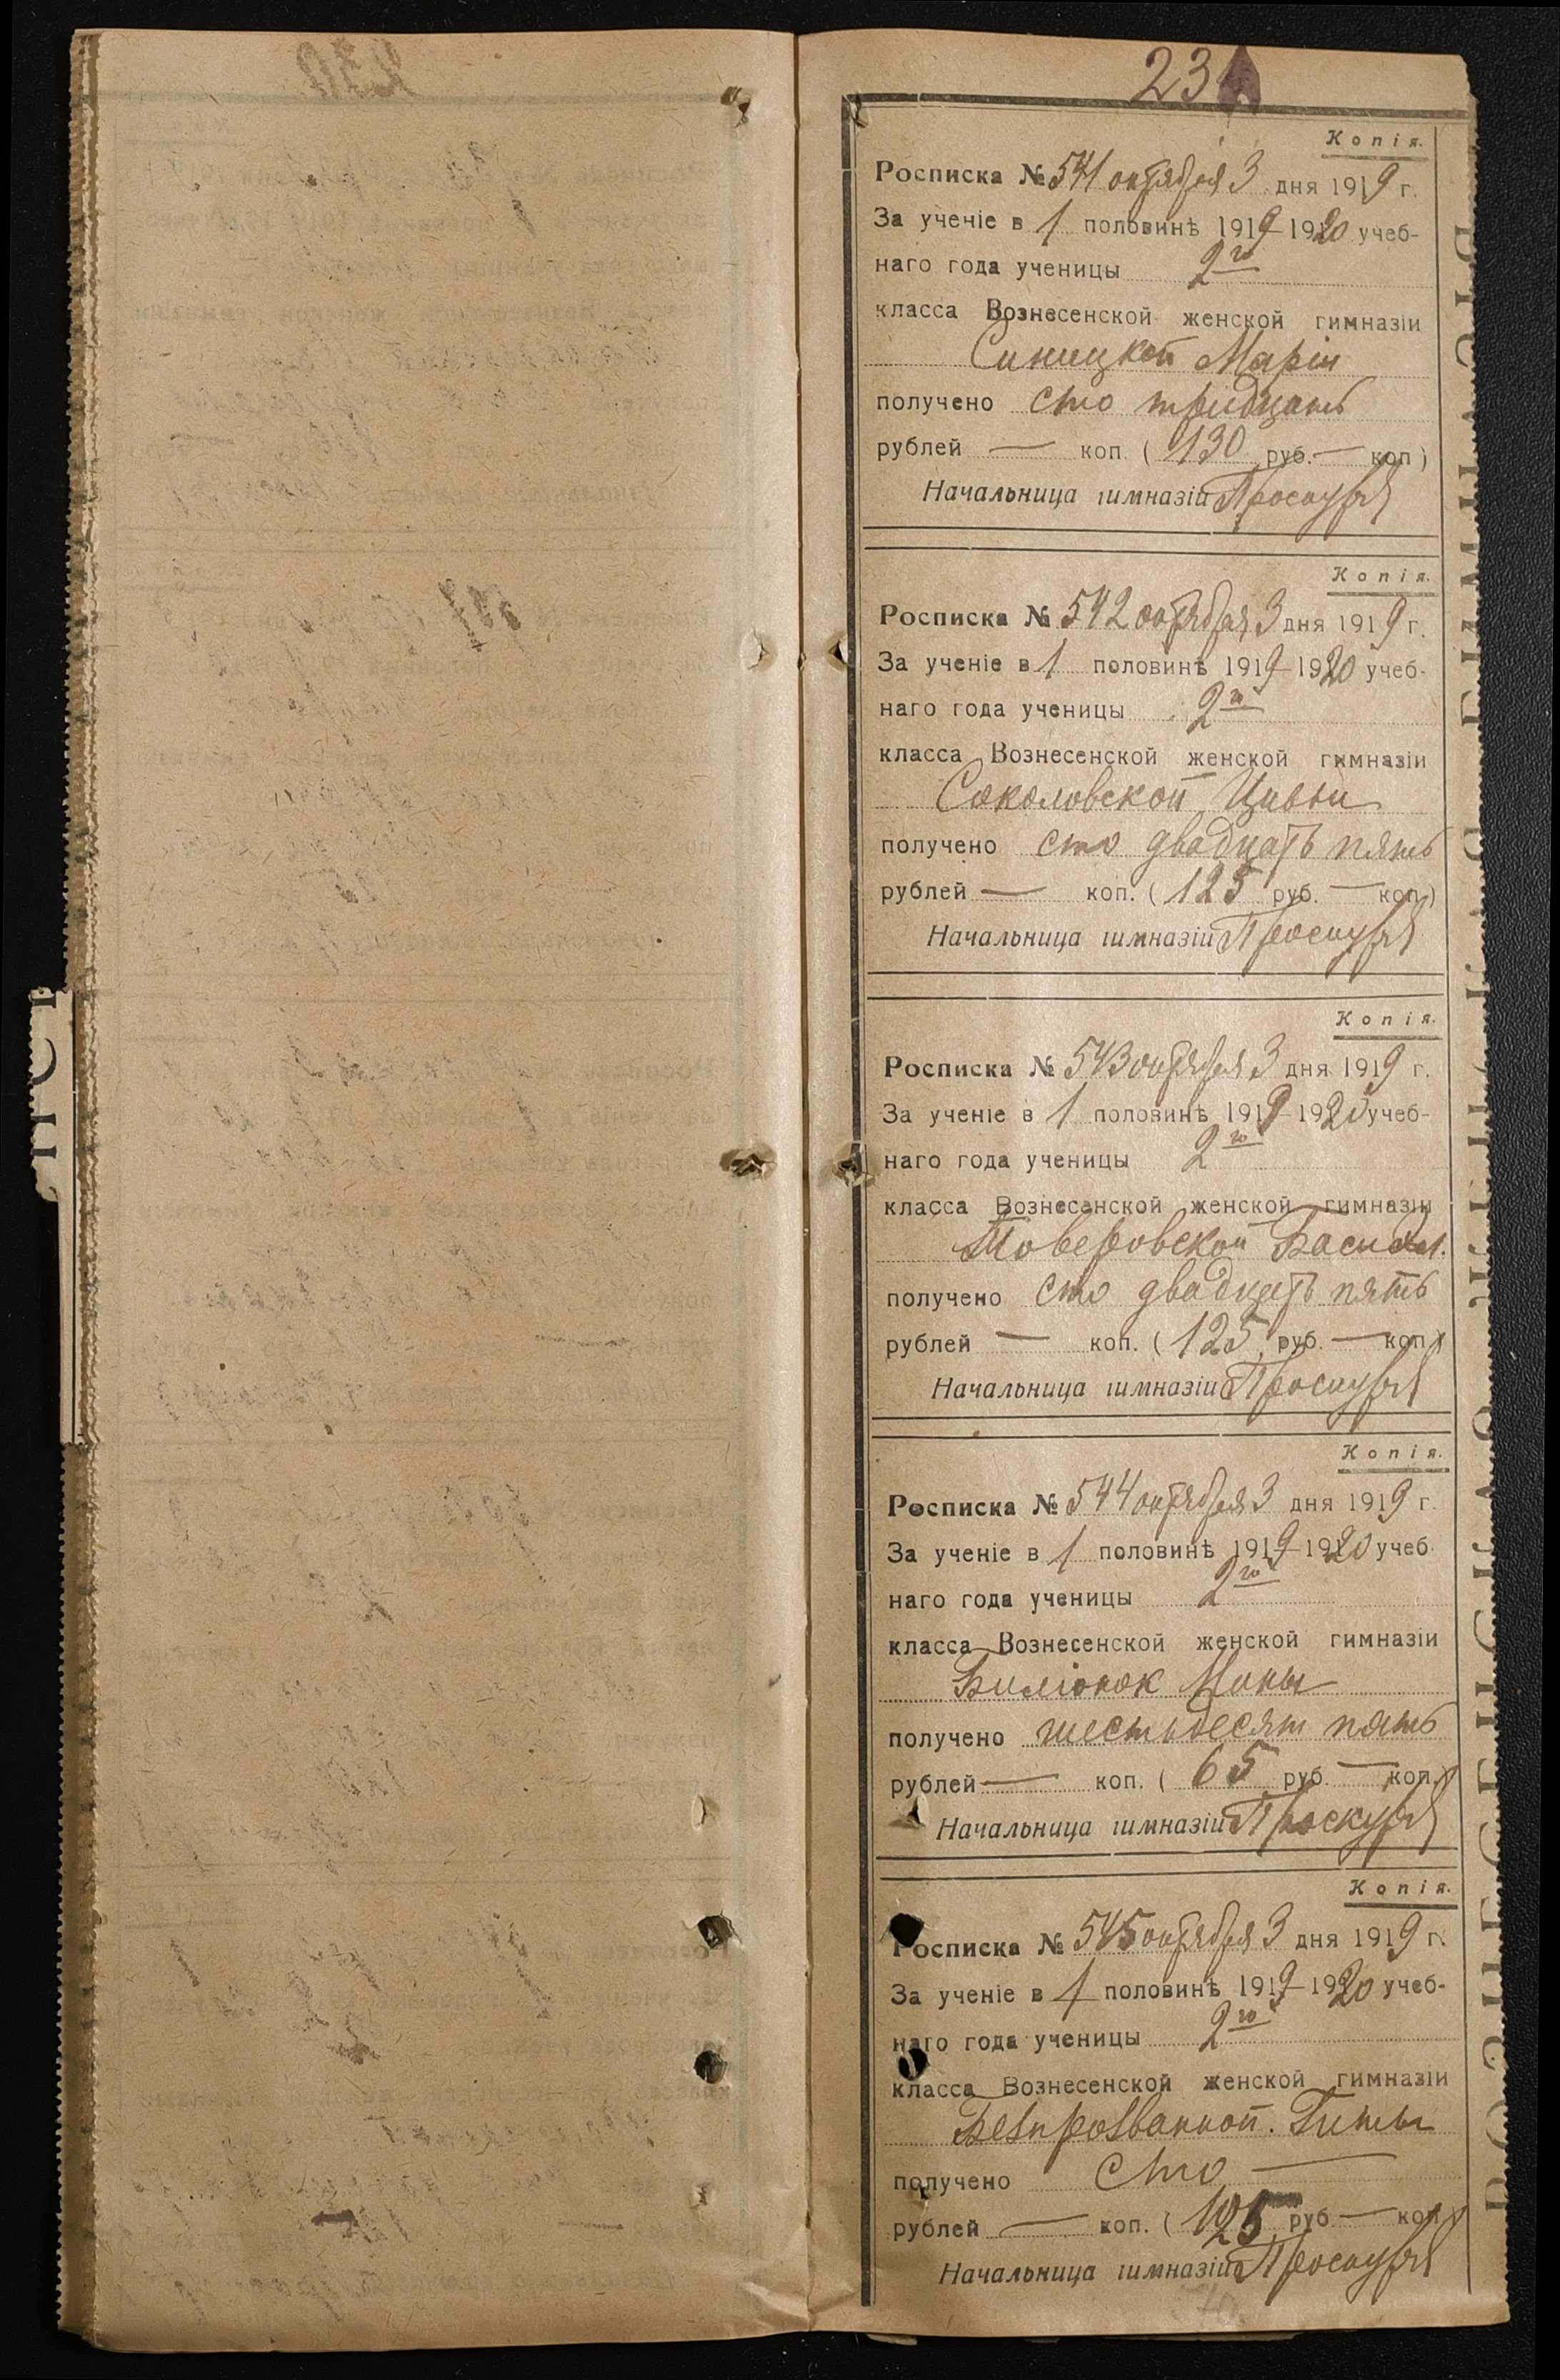 23
Копія.
Росписка № 541 октября 3 дня 1919 г.
За ученіе в 1 половинѣ 1919-1920 учеб-
наго года ученицы 2го
класса Вознесенской женской гимназіи
Синицкой Маріи
получено сто тридцать
рублей — коп. (130 руб. — коп)
Начальница гимназіи Проскуря
Копія.
Росписка № 542 октября 3 дня 1919 г.
За ученіе в 1 половинѣ 1919-1920 учеб-
наго года ученицы 2го
класса Вознесенской женской гимназіи
Соколовской Цивьи
получено сто двадцать пять
рублей — коп. (125 руб. — коп.)
Начальница гимназіи Проскуря
Копія.
Росписка № 543 октября 3 дня 1919 г.
За ученіе в 1 половинѣ 1919-1920 учеб-
наго года ученицы 2го
класса Вознесенской женской гимназіи
Товеровской Баси
получено сто двадцать пять
рублей — коп. (125 руб. — коп.)
Начальница гимназіи Проскуря
Копія.
Росписка № 544 октября 3 дня 1919 г.
За ученіе в 1 половинѣ 1919-1920 учеб
наго года ученицы 2го
класса Вознесенской женской гимназіи
Биліонок Мины
получено шестьдесят пять
рублей — коп. (65 руб. — коп.)
Начальница гимназіи Проскуря
Копія.
Росписка № 545 октября 3 дня 1919 г.
За ученіе в 1 половинѣ 1919-1920 учеб-
наго года ученицы 2го
класса Вознесенской женской гимназіи
Безпрозванной. Гиты
получено сто —
рублей — коп. (125 руб. — коп.)
Начальница гимназіи Проскуря